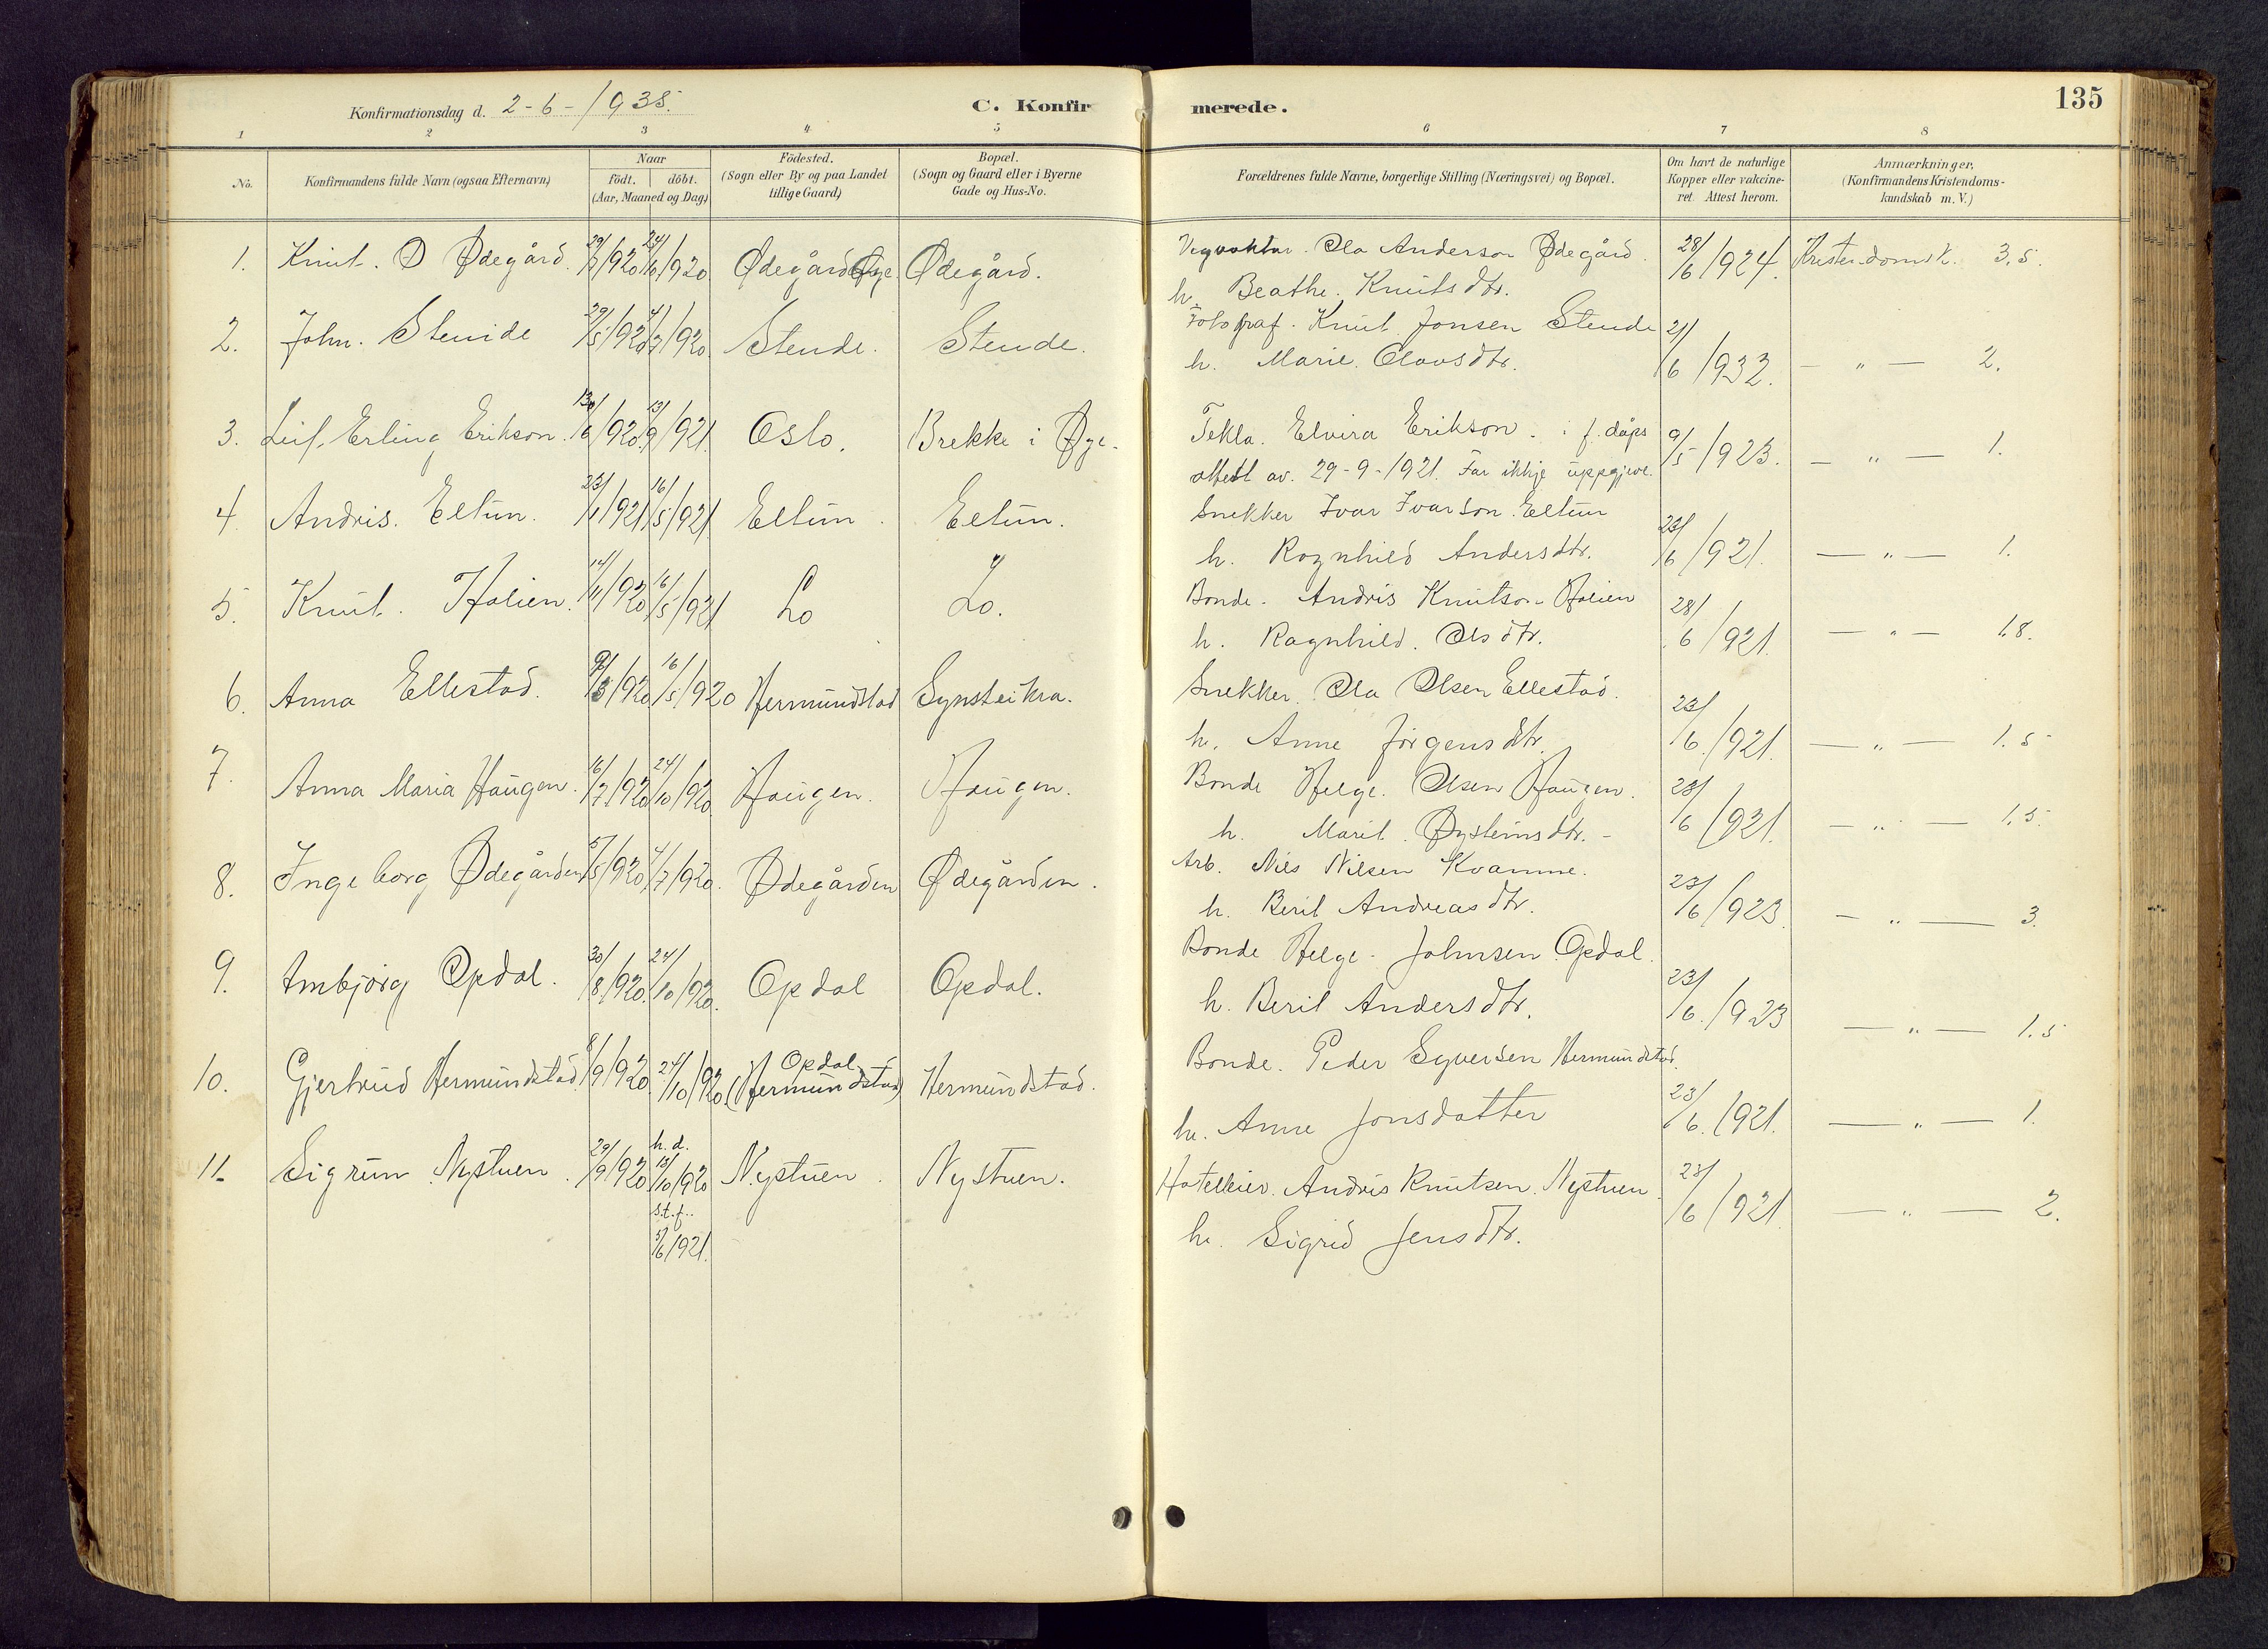 Konfirmationsdag d. 2-6-1935.
C. Konfirmerede.
135
1 2 3 4 5 6 7 8
No.
Konfirmandens fulde Navn (ogsaa Efternavn)
Naar
födt. döbt.
(Aar, Maaned og Dag)
Födested.
(Sogn eller By og paa Landet
tillige Gaard)
Bopæl.
(Sogn og Gaard eller i Byerne
Gade og Hus-No.
Forældrenes fulde Navne, borgerlige Stilling (Næringsvei) og Bopæl.
Om havt de naturlige
Kopper eller vakcine-
ret. Attest herom.
Anmærkninger,
(Konfirmandens Kristendoms-
kundskab m. V.)
1. Knut. O Ødegård. 29/7 1920 24/10 1920. Ødegård Øye Ødegård. Vegvaktar. Ola Anderson Ødegård. 28/6 1924. Kristendomsk. 3,5.
h. Beathe. Knutsdtr.
2. John. Stende 29/5 1920 4/7 1920. Stende. Stende. Fotograf. Knut Jonsen Stende 21/6 1932. — „ — 2.
h. Marie. Olavsdtr.
3. Leif. Erling Erikson. 6 1920. 13/9 1921. Oslo. Brekke i Øye. Tekla. Elvira Erikson. i f. dåps 9/5 1923. — „ — 1.
attest av. 29-9-1921. Far ikkje uppgjeve.
4. Andris. Eltun. 23/1 1921 16/5 1921 Eltun. Eltun. Snekker Ivar Ivarson Eltun 23/6 1921. — „ — 1.
h. Ragnhild Andersdtr.
5. Knut. Holien. 14/11 1920 16/5 1921 Lo Lo. Bonde. Andris Knutson Holien 28/6 1921. — „ — 1.8.
h. Ragnhild. Olsdtr.
6. Anna Ellestad. 3 1920. 16/5 1920 Hermundstad Synsteikra. Snekker. Ola Olsen Ellestad. 23/6 1921. — „ — 1.5
h. Anne Jörgensdtr.
7. Anna Maria Haugen. 16/7 1920 24/10 1920. Haugen. Haugen. Bonde Helge. Olsen Haugen. 28/6 1921. — „ — 1.5.
h. Marit. Øysteinsdtr.
8. Ingeborg Ødegården 5/5 1920 4/7 1920. Ødegården Ødegården. Arb. Nils Nilsen Kvamme. 23/6 1923 — „ — 3.
h. Berit Andreasdtr.
9. Ambjörg Opdal. 30/8 1920. 24/10 1920. Opdal Opdal. Bonde Helge. Johnsen Opdal. 23/6 1923 — „ — 1.5
h. Berit Andersdtr.
10. Gjertrud Hermundstad. 8/9 1920. 24/10 1920. Opdal (Hermundstad) Hermundstad. Bonde. Peder Syversen Hermundstad. 23/6 1921. — „ — 1.
h. Anne Jonsdatter
11. Sigrun Nystuen. 29/9 1920 h. d. 13/10 1920 Nystuen. Nystuen. Hotelleier. Andris Knutsen. Nystuen. 23/6 1921. — „ — 2.
s.t.f.. 5/6 1921. h. Sigrid Jensdtr.